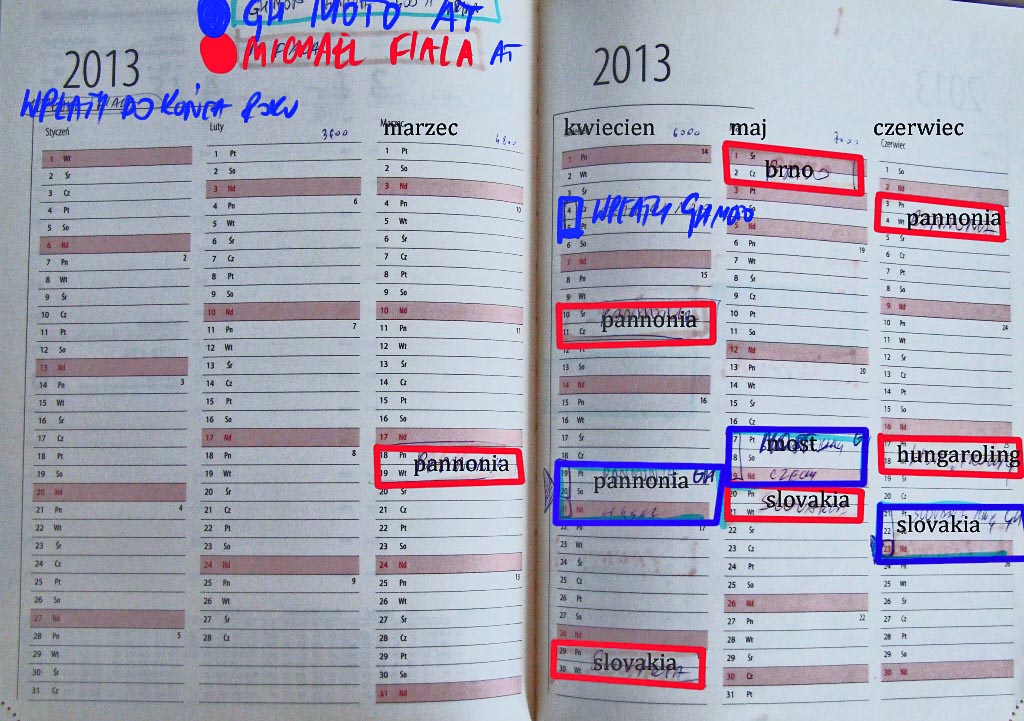 GH MOTO AT
MICHAEL FIALA AT
2013
WPŁATY DO KOŃCA ROKU
Styczeń
1 Wt
2 Śr
3 Cz
4 Pt
5 So
6 Nd
7 Pn 2
8 Wt
9 Śr
10 Cz
11 Pt
12 So
13 Nd
14 Pn 3
15 Wt
16 Śr
17 Cz
18 Pt
19 So
20 Nd
21 Pn 4
22 Wt
23 Śr
24 Cz
25 Pt
26 So
27 Nd
28 Pn 5
29 Wt
30 Śr
31 Cz
Luty 3800
1 Pt
2 So
3 Nd
4 Pn 6
5 Wt
6 Śr
7 Cz
8 Pt
9 So
10 Nd
11 Pn 7
12 Wt
13 Śr
14 Cz
15 Pt
16 So
17 Nd
18 Pn 8
19 Wt
20 Śr
21 Cz
22 Pt
23 So
24 Nd
25 Pn 9
26 Wt
27 Śr
28 Cz
marzec
4800
1 Pt
2 So
3 Nd
4 Pn 10
5 Wt
6 Śr
7 Cz
8 Pt
9 So
10 Nd
11 Pn 11
12 Wt
13 Śr
14 Cz
15 Pt
16 So
17 Nd
18 Pn
pannonia
19 Wt
20 Śr
21 Cz
22 Pt
23 So
24 Nd
25 Pn 13
26 Wt
27 Śr
28 Cz
29 Pt
30 So
31 Nd
2013
kwiecien 6000
1 Pn 14
2 Wt
3 Śr
4
WPŁATY GH MOTO
6 So
7 Nd
8 Pn 15
9 Wt
10 Śr
pannonia
11 Cz
12 Pt
13 So
14 Nd
15 Pn 16
16 Wt
17 Śr
18 Cz
19 Pt
pannonia GH
20 So
21 Nd
22 Pn 17
23 Wt
24 Śr
25 Cz
26 Pt
27 So
28 Nd
29 Pn
slovakia
30 Wt
maj 7000
1 Śr
brno
2 Cz
3 Pt
5 Nd
6 Pn 19
7 Wt
8 Śr
9 Cz
10 Pt
11 So
12 Nd
13 Pn 20
14 Wt
15 Śr
16 Cz
17 Pt
most
18 So
19 Nd CZECHY
20 Pn
slovakia
21 Wt
22 Śr
23 Cz
24 Pt
25 So
26 Nd
27 Pn 22
28 Wt
29 Śr
30 Cz
31 Pt
czerwiec
Czerwiec
1 So
2 Nd
3 Pn
pannonia
4 Wt
5 Śr
6 Cz
7 Pt
8 So
9 Nd
10 Pn 24
11 Wt
12 Śr
13 Cz
14 Pt
15 So
16 Nd
17 Pn
hungaroling
18 Wt
19 Śr
20 Cz
21 Pt
slovakia
22 So
23 Nd
24 Pn 26
25 Wt
26 Śr
27 Cz
28 Pt
29 So
30 Nd